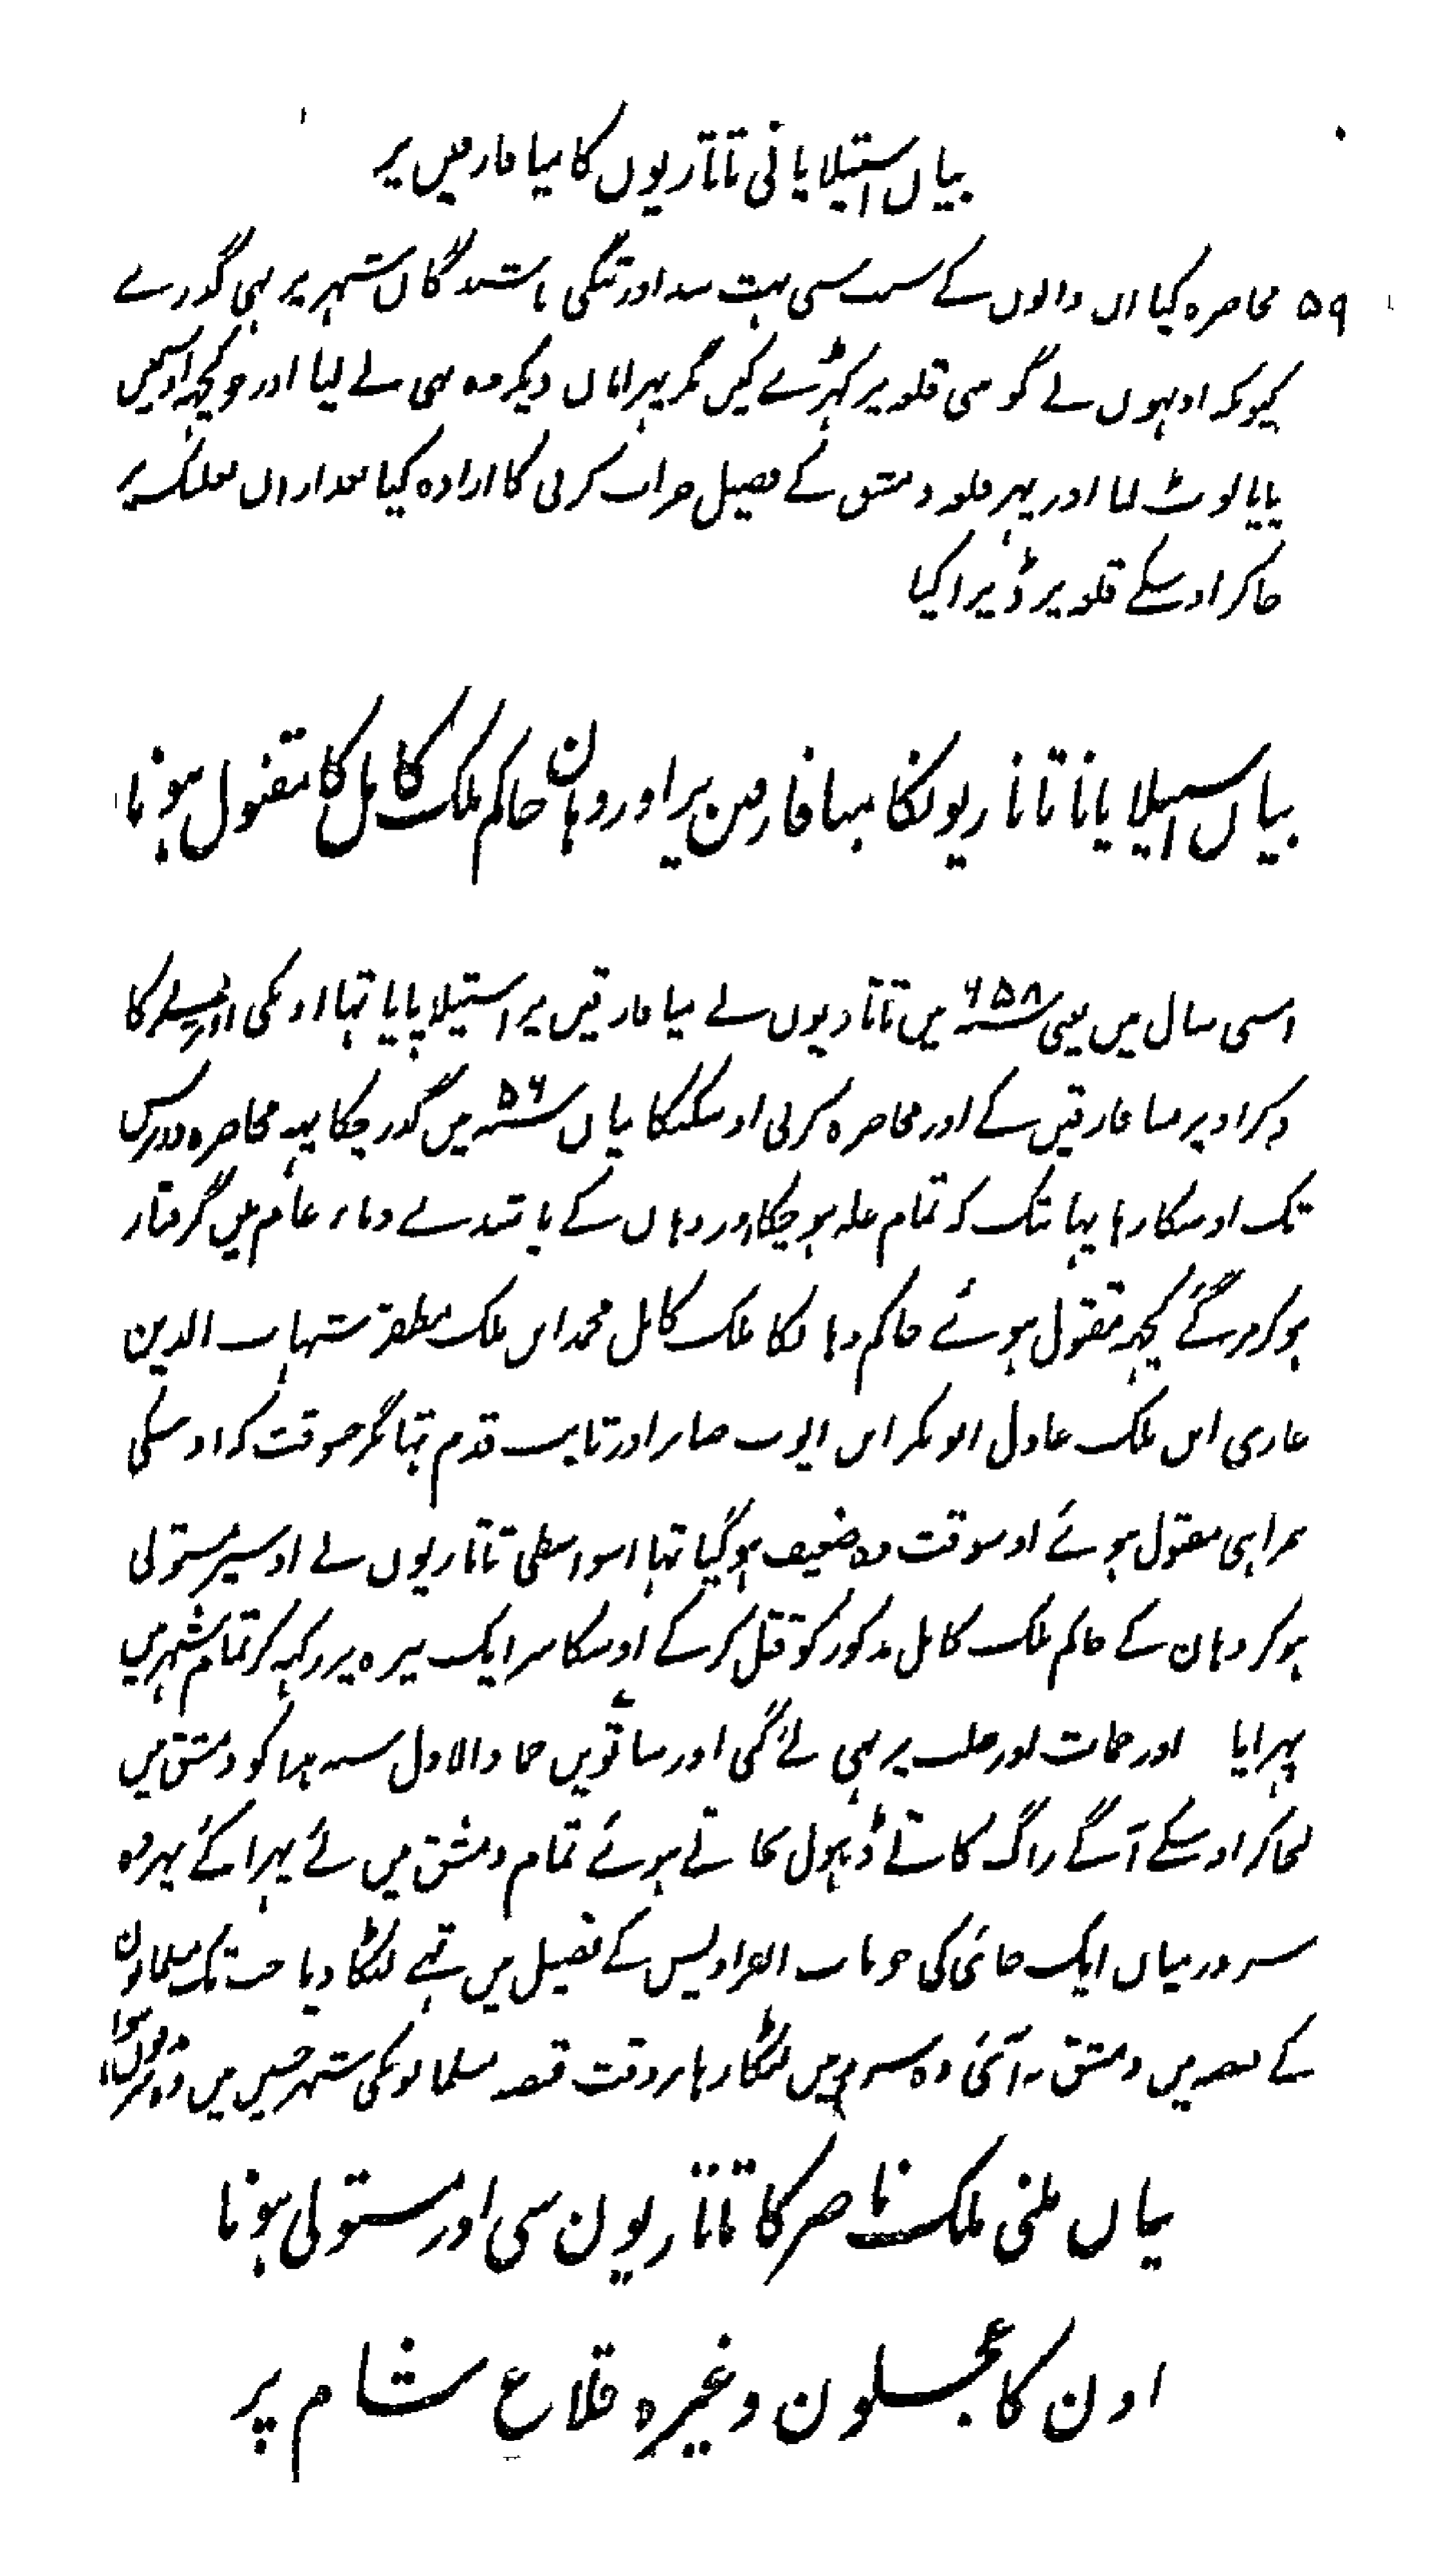 بیان استیلا پانی تاتاریوں کا میافارقین پر
۵۹ محاصرہ کیا ان والوں کے سبب سی بہت شدہ اور تنگی باشندگان شہر پر بہی گذرے
کیونکہ اونہوں نے گو سی قلعہ پر کہڑے کیں مگر پہر اماں دیکر وہ بہی لے لیا اور جو کچہ اوسمیں
پایا لوٹ لیا اور پہر قلعہ دمشق کے فصیل خراب کرنی کا ارادہ کیا بعد ازاں بعلبک پر
جاکر اوسکے قلعہ پر ڈیرا کیا
بیاں استیلا پانا تاتاریونکا میافارقین پر اور وہان حاکم ملک کامل کا مقتول ہونا
اسی سال میں یعنی ۶۵۸ میں تاتاریوں نے میافارقیں پر استیلا پایا تہا اونکی اوترنے کا
ذکر اوپر میافارقیں کے اور محاصرہ کرنی اوسکیکا بیاں ۵۶ میں گذر چکا یہہ محاصرہ دو برس
تک اوسکا رہا یہانتک کہ تمام غلہ ہوچکا اور وہاں کے باشندے وباء عام میں گرفتار
ہوکر مرگئے کچہہ مقتول ہوئے حاکم وہانکا ملک کامل محمد ابن ملک مظفر شہاب الدین
غازی ابن ملک عادل ابوبکر ابن ایوب صابر اور ثابت قدم تہا مگر جسوقت کہ اوسکی
ہمراہی مقتول ہوئے اوسوقت وہ ضعیف ہوگیا تہا اسواسطی تاتاریوں نے اوسپر مستولی
ہوکر وہان کے حاکم ملک کامل مذکور کو قتل کرکے اوسکا سر ایک نیزہ پر رکہہ کر تمام شہر میں
پہرایا اور حمات اور حلب پر بہی لے گئی اور ساتویں جمادالاول سنہ ہذا کو دمشق میں
لیجاکر اوسکے آگے راگ گاتے ڈہول بجاتے ہوئے تمام دمشق میں لئے پہرا کے پہر وہ
سر درمیاں ایک جائی کی جو باب الفرادیس کے فصیل میں تہے لٹکا دیا جب تک مسلمانون
کے قبضہ میں دمشق نہ آئی وہ سر وہیں لٹکا رہا بر وقت قبضہ مسلمانونکی شہر میں وہ سر مدفون ہوا
بیاں ملنی ملک ناصر کا تاتاریون سی اور مستولی ہونا
اون کا عجلون وغیرہ قلاع شام پر